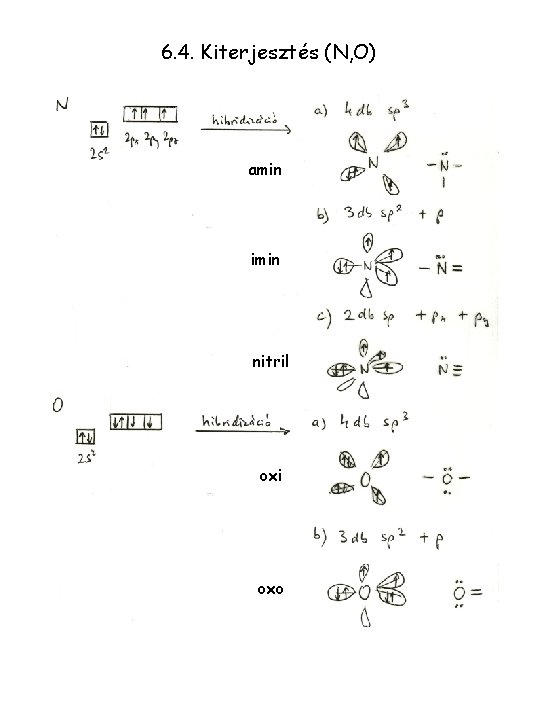 6.4. Kiterjesztés (N,O)
N
2s²
2px 2py 2pz
hibridizáció
a) 4 db sp³
N
– N –
amin
b) 3 db sp² + p
imin
N
– N =
c) 2 db sp + px + py
nitril
N
N ≡
O
2s²
hibridizáció
a) 4 db sp³
oxi
O
– O –
b) 3 db sp² + p
oxo
O
O =